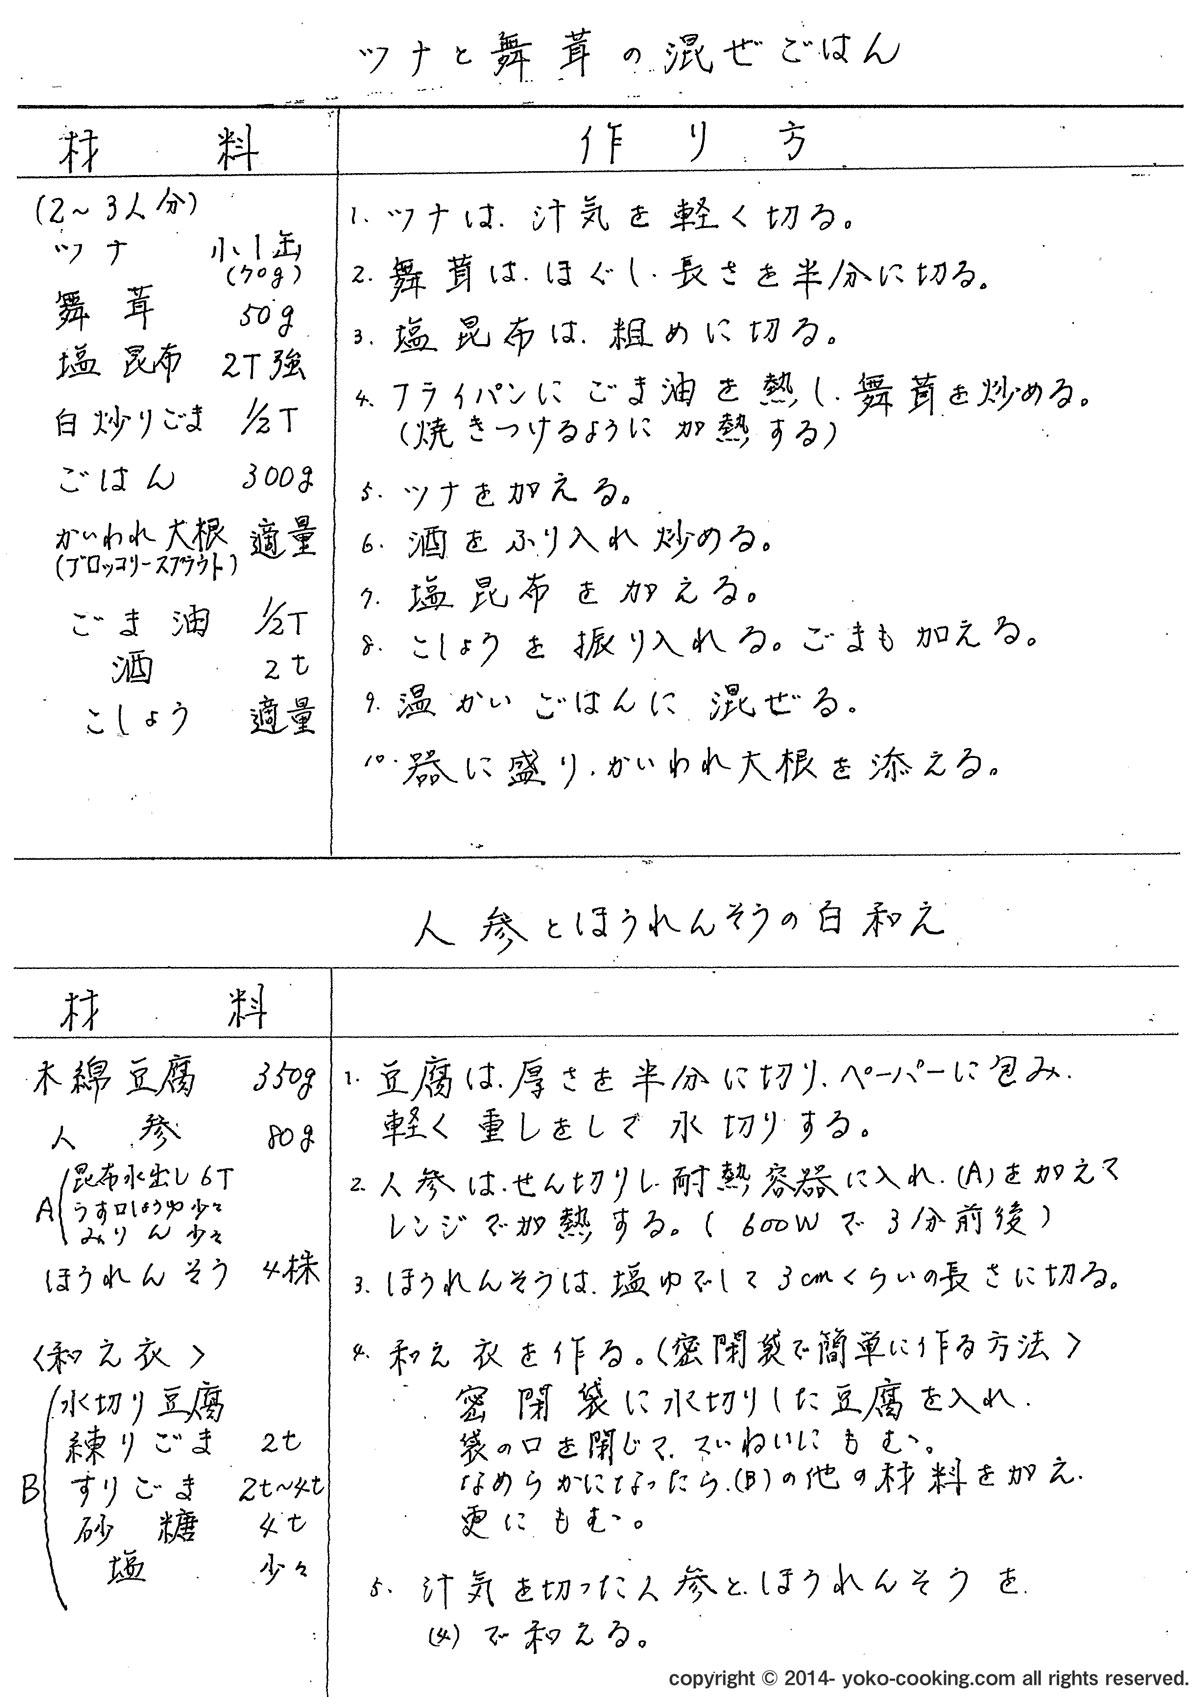 ツナと舞茸の混ぜごはん
材料
作り方
(2～3人分)
ツナ 小1缶
(70g)
舞茸 50g
塩昆布 2T強
白炒りごま 1/2T
ごはん 300g
かいわれ大根 適量
(ブロッコリースプラウト)
ごま油 1/2T
酒 2t
こしょう 適量
1. ツナは、汁気を軽く切る。
2. 舞茸は、ほぐし、長さを半分に切る。
3. 塩昆布は、粗めに切る。
4. フライパンにごま油を熱し、舞茸を炒める。
(焼きつけるように加熱する)
5. ツナを加える。
6. 酒をふり入れ炒める。
7. 塩昆布を加える。
8. こしょうを振り入れる。ごまも加える。
9. 温かいごはんに混ぜる。
10. 器に盛り、かいわれ大根を添える。
人参とほうれんそうの白和え
材料
木綿豆腐 350g
人参 80g
A
昆布水出し 6T
うす口しょうゆ 少々
みりん 少々
ほうれんそう 4株
〈和え衣〉
B
水切り豆腐
練りごま 2t
すりごま 2t～4t
砂糖 4t
塩 少々
1. 豆腐は、厚さを半分に切り、ペーパーに包み、
軽く重しをして水切りする。
2. 人参は、せん切りし、耐熱容器に入れ、(A)を加えて
レンジで加熱する。(600Wで3分前後)
3. ほうれんそうは、塩ゆでして3cmくらいの長さに切る。
4. 和え衣を作る。〈密閉袋で簡単に作る方法〉
密閉袋に水切りした豆腐を入れ、
袋の口を閉じて、ていねいにもむ。
なめらかになったら、(B)の他の材料を加え、
更にもむ。
5. 汁気を切った人参と、ほうれんそうを、
(4)で和える。
copyright © 2014- yoko-cooking.com all rights reserved.